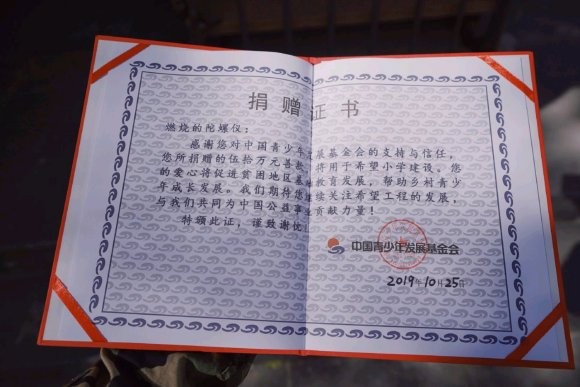 捐赠证书
燃烧的陀螺仪：
感谢您对中国青少年发展基金会的支持与信任，
您所捐赠的伍拾万元善款，将用于希望小学建设。您
的爱心将促进贫困地区基础教育发展，帮助乡村青少
年成长发展。我们期待您继续关注希望工程的发展，
与我们共同为中国公益事业贡献力量！
特颁此证，谨致谢忱！
中国青少年发展基金会
2019年10月25日